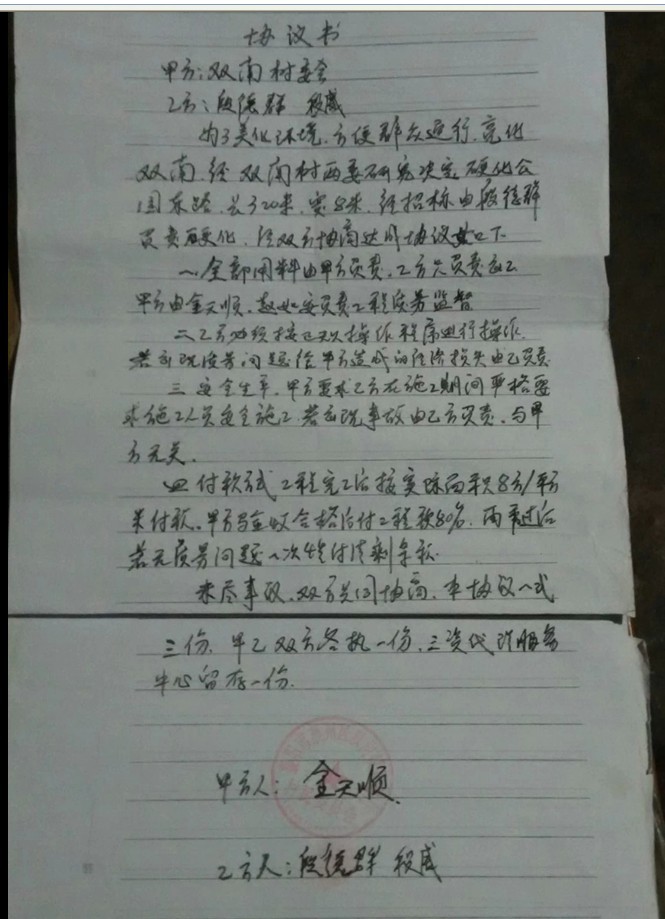 协议书
甲方：双南村委会
乙方：段德群 段威
为了美化环境，方便群众通行，亮化
双南，经双南村两委研究决定硬化公
园东路，长320米，宽5米，经招标由段德群
负责硬化，经双方协商达成协议如下
一、全部用料由甲方负责，乙方只负责施工
甲方由金天顺，负责工程质量监督
二、乙方必须按正规操作程序进行操作，
若出现质量问题给甲方造成的经济损失由乙负责
三、安全生产，甲方要求乙方在施工期间严格要
求施工人员安全施工，若出现事故由乙方负责，与甲
方无关。
四 付款方式 工程完工后按实际面积8元/平方
米付款，甲方验收合格后付工程款80%，两年过后
若无质量问题一次性付清剩余款
未尽事项，双方共同协商，本协议一式
三份，甲乙双方各执一份，三资代理服务
中心留存一份。
甲方人：金天顺
乙方人：段德群 段威